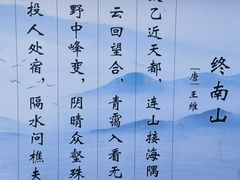 终南山
[唐]王维
乙近天都，连山接海隅
云回望合，青霭入看无
野中峰变，阴晴众壑殊
投人处宿，隔水问樵夫